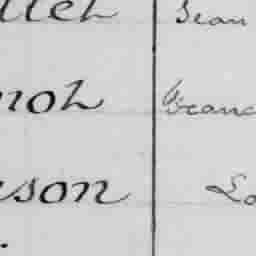 llet Jean
noh Franc
uson Lo